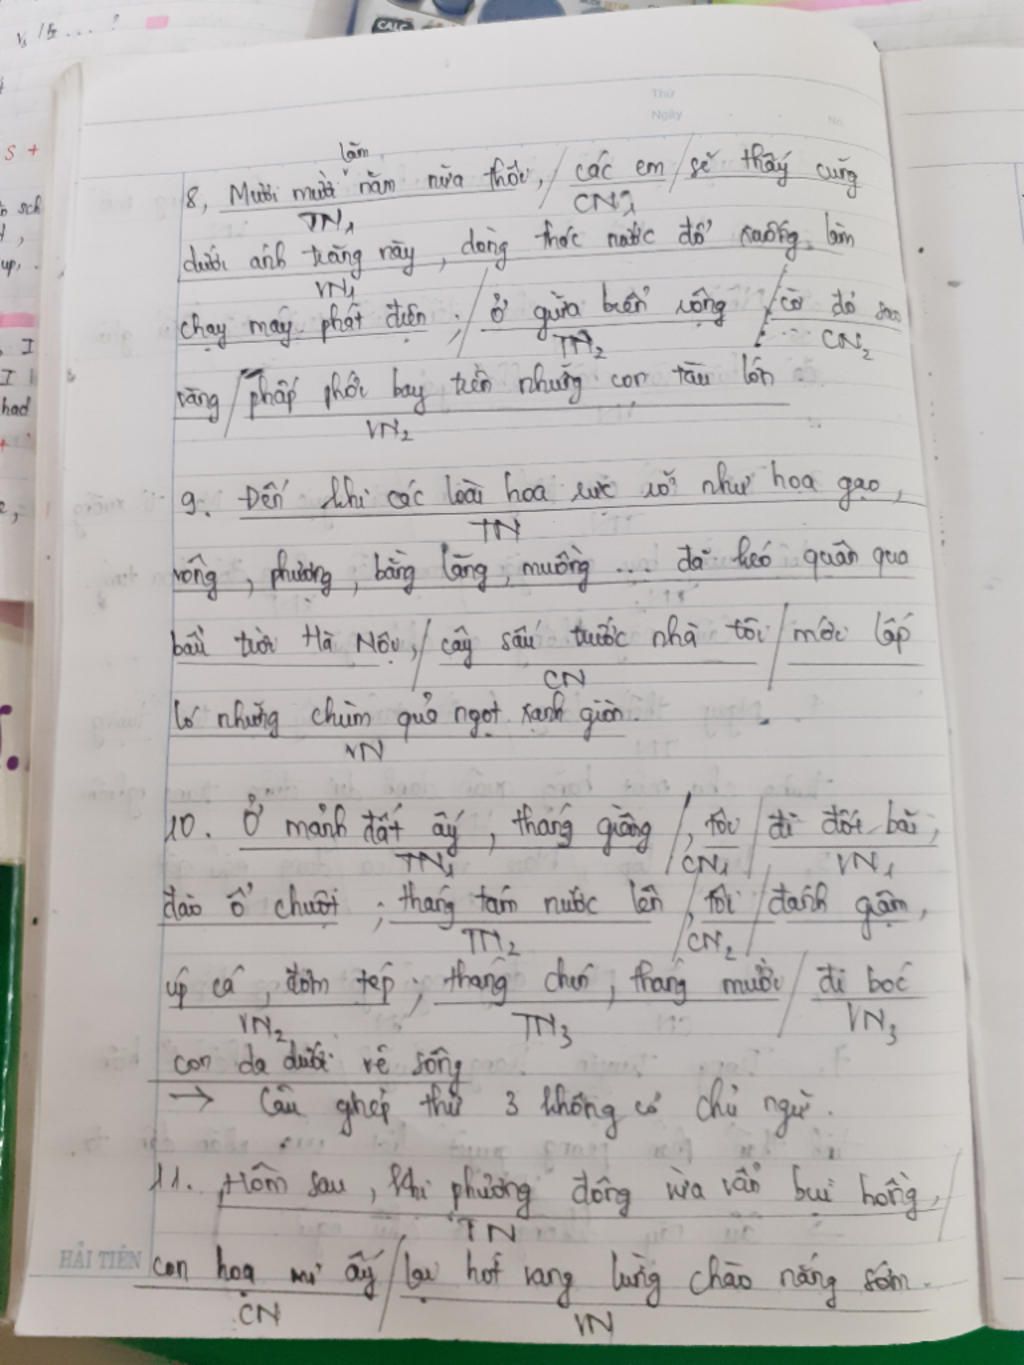 CALC
Thứ
Ngày
No.
lăm
8, Mươi mười năm nữa thôi, / các em / sẽ thấy cũng
TN1 CN1
dưới ánh trăng này, dòng thác nước đổ xuống làm
VN1
chạy máy phát điện ; / ở giữa biển rộng / cờ đỏ sao
TN2 CN2
vàng / phấp phới bay trên những con tàu lớn
VN2
9. Đến khi các loài hoa rực rỡ như hoa gạo,
TN
vông, phượng, bằng lăng, muồng ... đã kéo quân qua
bầu trời Hà Nội, / cây sấu trước nhà tôi / mới lấp
CN
ló những chùm quả ngọt xanh giòn.
VN
10. Ở mảnh đất ấy, tháng giêng /, tôi / đi đốt bãi,
TN1 CN1 VN1
đào ổ chuột ; tháng tám nước lên /, tôi / đánh giậm,
TN2 CN2
úp cá, đơm tép ; tháng chín, tháng mười / đi bóc
VN2 TN3 VN3
con da dưới vệ sông
→ Câu ghép thứ 3 không có chủ ngữ.
11. Hôm sau, khi phương đông vừa vẩn bụi hồng, /
TN
con hoạ mi ấy / lại hót vang lừng chào nắng sớm.
CN VN
HẢI TIẾN